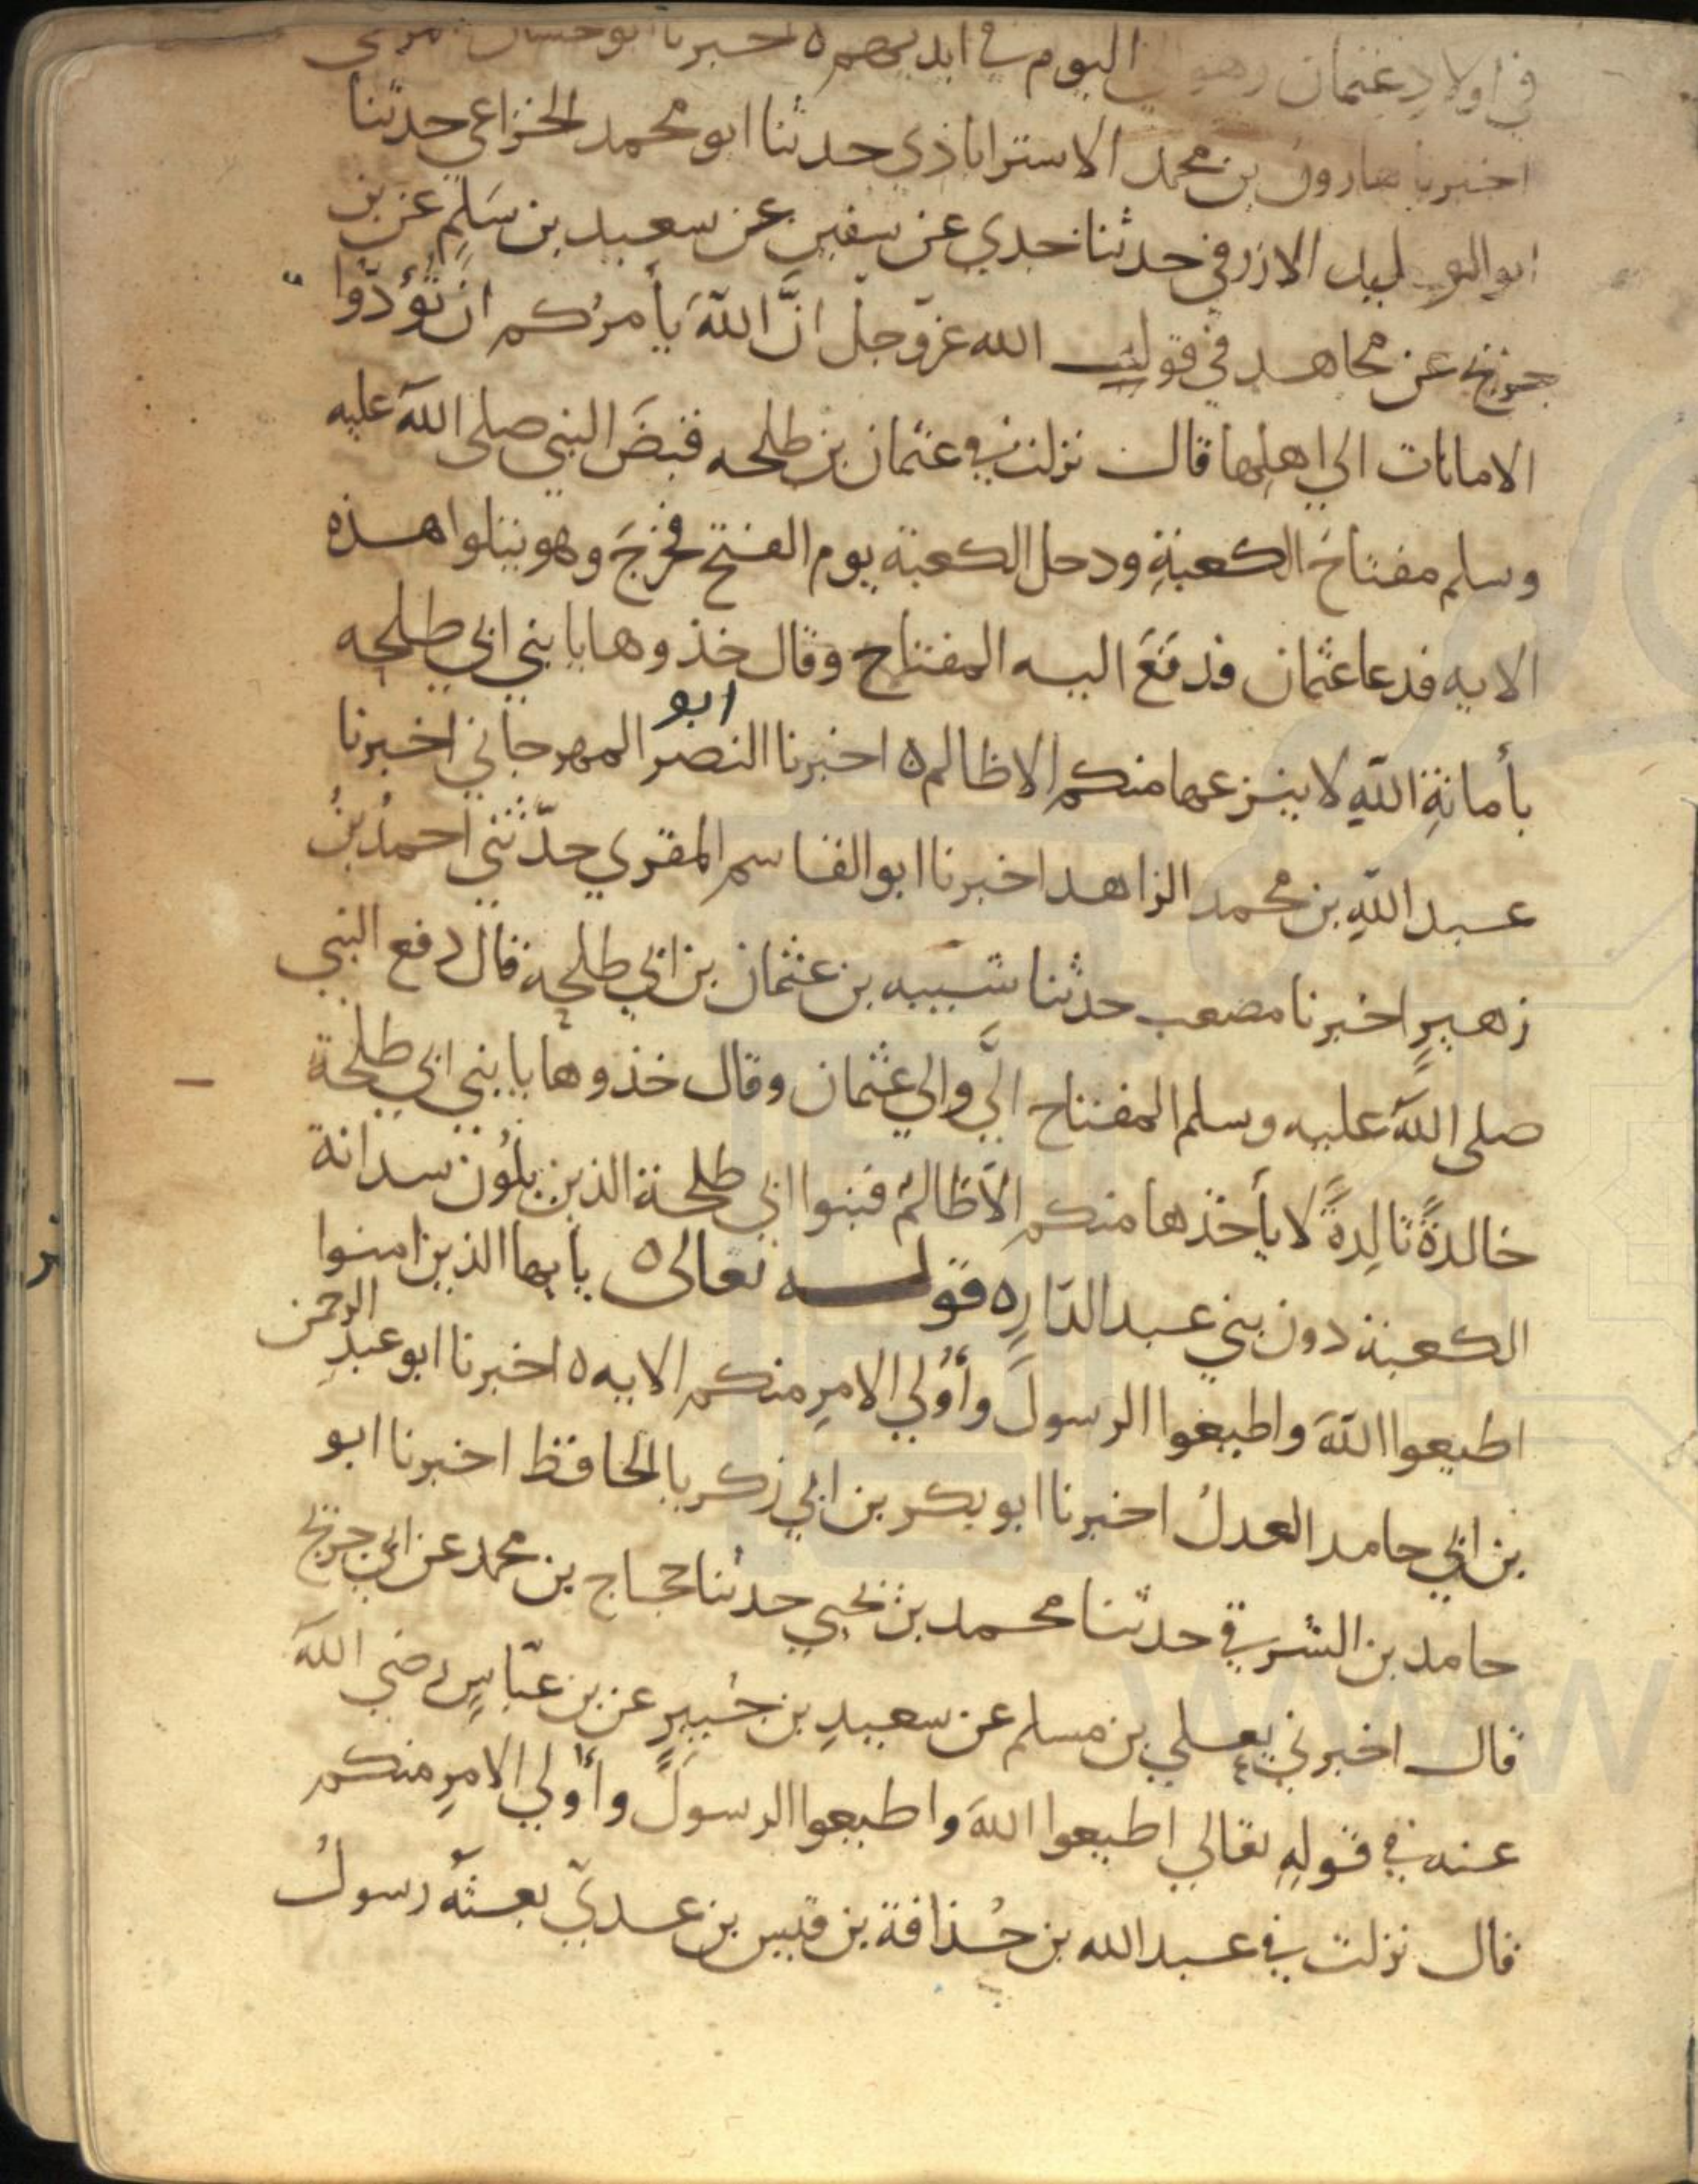 في اولاد عثمان وهو اليوم في ايديهم ه اخبرنا ابو حسان المزكي
اخبرنا هارون بن محمد الاستراباذي حدثنا ابو محمد الخزاعي حدثنا
ابو الوليد الازرقي حدثنا جدي عن سفين عن سعيد بن سلم عن بن
جريج عن مجاهد في قول الله عز وجل انَّ اللهَ يأمركم ان تُؤدّوا
الامانات الي اهلها قال نزلت في عثمان بن طلحه قبضَ النبي صلى الله عليه
وسلم مفتاح الكعبةِ ودخل الكعبة يوم الفتح فخرجَ وهو يتلوا هذه
الايه فدعا عثمان فدفعَ اليه المفتاح وقال خذوها يا بني ابي طلحه
بأمانةِ اللهِ لا ينزعها منكم الا ظالم ه اخبرنا ابو النصر المهرجاني اخبرنا
عبد اللهِ بن محمد الزاهد اخبرنا ابو القاسم المقري حدّثني احمدُ بنُ
زهيرٍ اخبرنا مصعب حدثنا شيبه بن عثمان بن ابي طلحة قال دفع النبي
صلى الله عليه وسلم المفتاح اليَّ والي عثمان وقال خذوها يا بني ابي طلحة
خالدةً تالِدةً لا يأخذها منكم الا ظالمٌ فبنوا ابي طلحة الذين يلُون سدانة
الكعبة دون بني عبد الدّارِ ه قوله تعالى ه يا يها الذين امنوا
اطيعوا اللهَ واطيعوا الرسولَ وأُولي الامرِ منكم الايه ه اخبرنا ابو عبدِ الرحمن
بن ابي حامد العدلُ اخبرنا ابو بكر بن ابي زكريا الحافظ اخبرنا ابو
حامد بن الشرقي حدثنا محمد بن يحيي حدثنا حجاج بن محمد عن ابي جريج
قال اخبرني يعلي بن مسلم عن سعيدِ بن جُبيرٍ عن بن عبّاسٍ رضي الله
عنه في قولِهِ تعالي اطيعوا اللهَ واطيعوا الرسولَ وأُولي الامرِ منكم
قال نزلت في عبد الله بن حُذافة بن قيس بن عديّ بعثهُ رسولُ